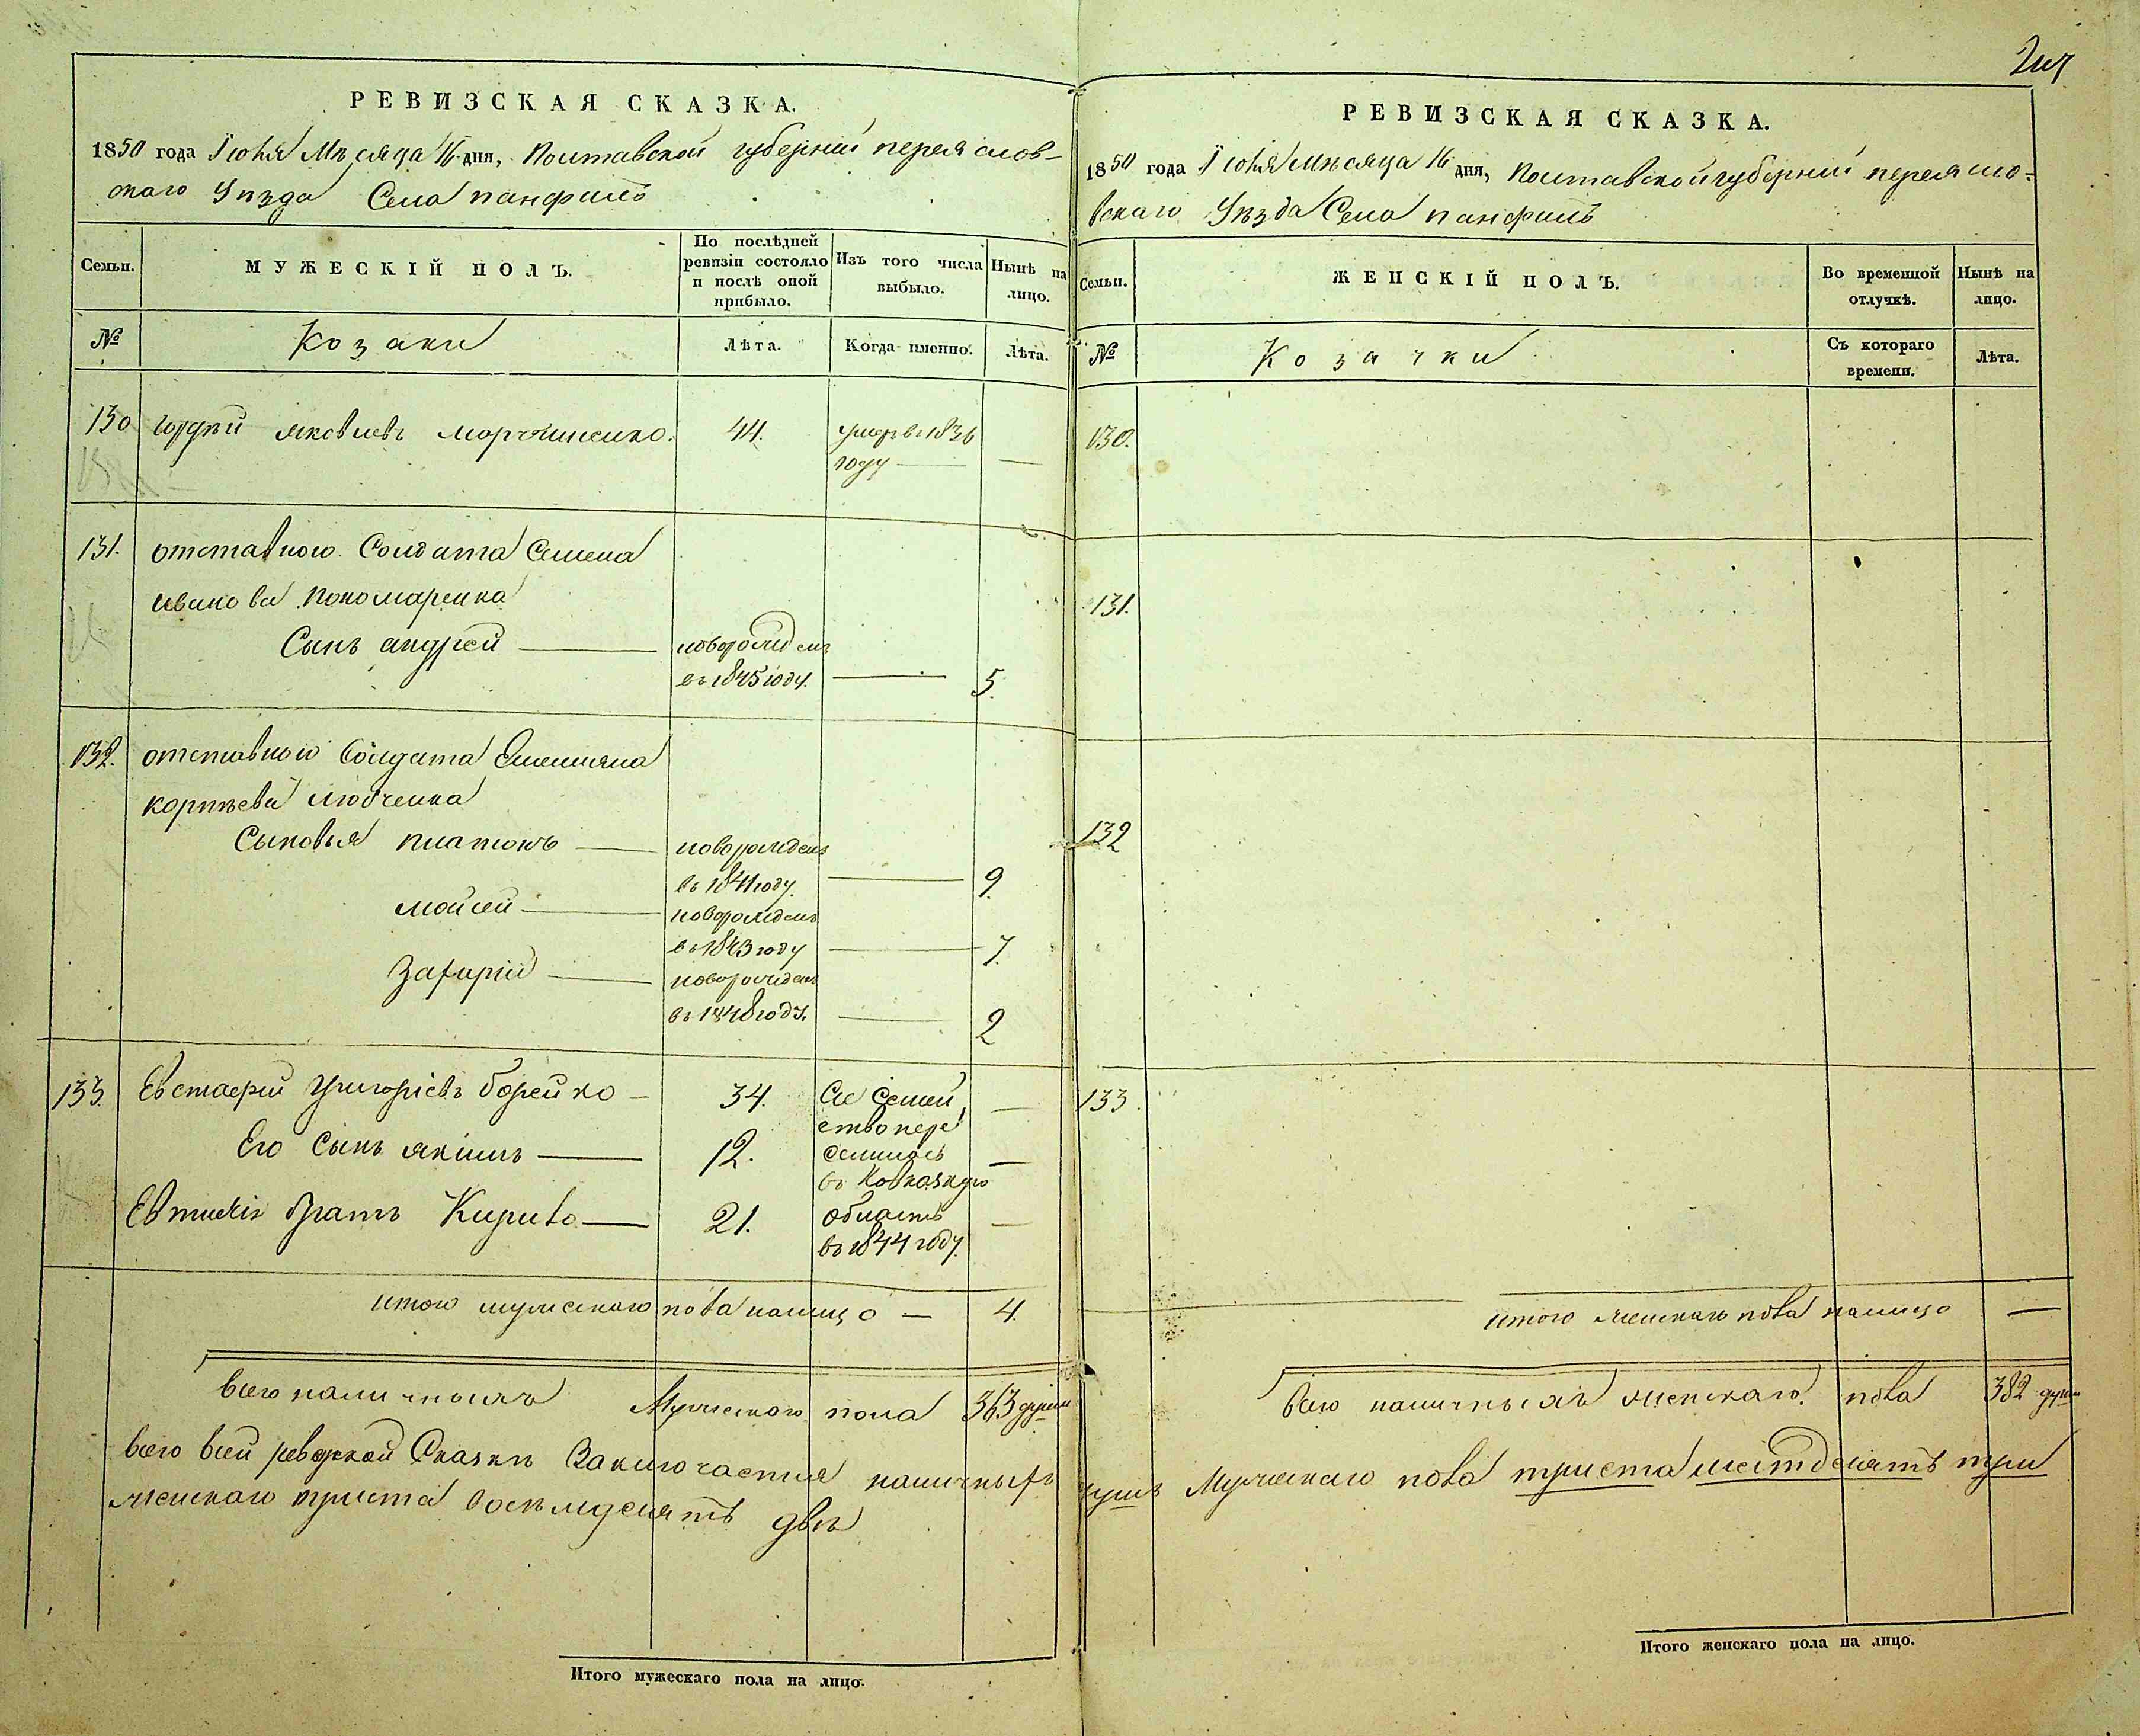 РЕВИЗСКАЯ СКАЗКА.
1850 года Іюня Мѣсяца 16 дня, Полтавской губерніи переяслов-
скаго Уѣзда Села панфилъ
Семьи.
МУЖЕСКІЙ ПОЛЪ.
По послѣдней ревизіи состояло и послѣ оной прибыло.
Изъ того числа выбыло.
Нынѣ на лицо.
№
Козаки
Лѣта.
Когда именно.
Лѣта.
130 Гордѣй яковлевъ 44. умеръ въ 1836
году —
131. отставного Солдата Семена
иванова пономаренка
Сынъ андрей — новорожденъ
въ 1845 году. — 5.
132. отставного Солдата Емельяна
корнѣева любченка
Сыновья платонъ — новорожденъ
въ 1841 году. — 9.
мойсей — новорожденъ
въ 1843 году — 7.
Захарій — новорожденъ
въ 1848 году. — 2
133. Евстафій Григоріевъ борейко — 34. Сіе Семей —
ство пере
Его Сынъ якимъ — 12. селилось —
въ Ковказкую
Евстафія братъ Кирило — 21. область —
въ 1844 году.
итого мужескаго пола налицо — 4.
всего наличныхъ Мужескаго пола 363 души
всего всей ревизской Сказкѣ Заключается наличныхъ
женскаго триста восемдесятъ двѣ
Итого мужескаго пола на лицо.
РЕВИЗСКАЯ СКАЗКА.
1850 года Іюня Мѣсяца 16 дня, Полтавской губерніи переясло-
вскаго Уѣзда Села панфилъ
Семьи.
ЖЕНСКІЙ ПОЛЪ.
Во временной отлучкѣ.
Нынѣ на лицо.
№
Козачки
Съ котораго времени.
Лѣта.
130.
131.
132
133.
итого женскаго пола налицо —
Всего наличныхъ женскаго пола 382 души
душъ Мужескаго пола триста шестдесятъ три
Итого женскаго пола на лицо.